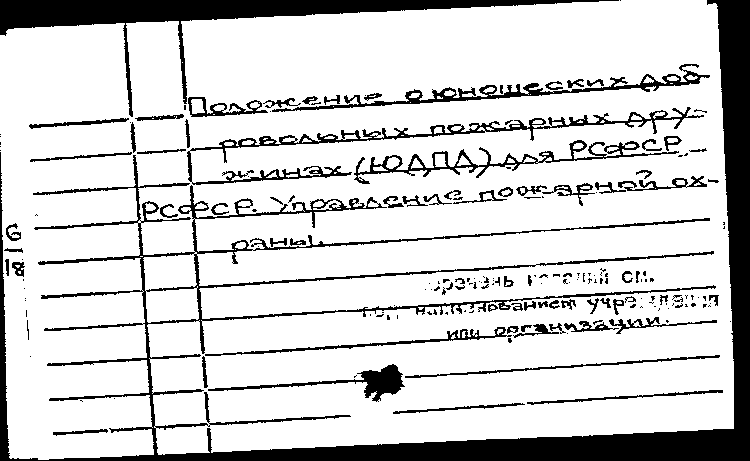 Положение о юношеских доб-
ровольных пожарных дру-
жинах (ЮДПД) для РСФСР.
РСФСР. Управление пожарной ох-
раны.
6
18
Перечень изданий см.
под наименованием учреждения
или организации.